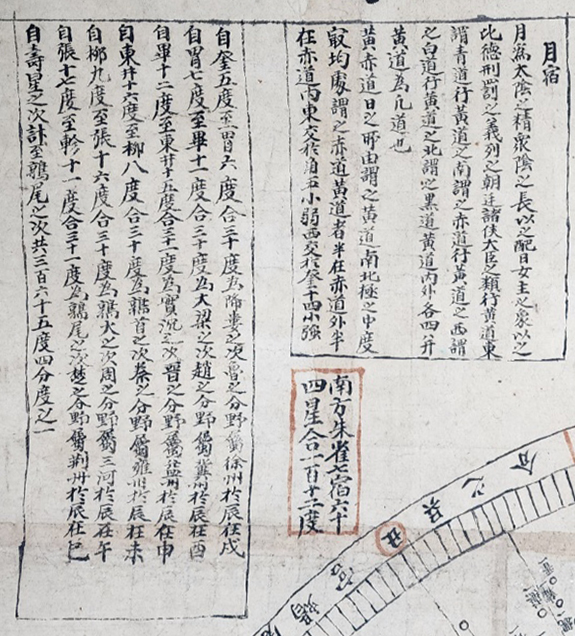 月宿
月爲太陰之精衆陰之長以之配日女主之象以之
比德刑罰之義列之朝廷諸侯大臣之類行黃道東
謂青道行黃道之南謂之赤道行黃道之西謂
之白道行黃道之北謂之黑道黃道內外各四并
黃道為九道也
黃赤道日之所由謂之黃道南北極之中度
㝡均處謂之赤道黃道者半在赤道外半
在赤道內東交於角五小弱西交於奎十四小強
南方朱雀七宿六十
四星合一百十二度
自奎五度至胃六度合三十度為降婁之次魯之分野屬徐州於辰在戌
自胃七度至畢十一度合三十度為大梁之次趙之分野屬冀州於辰在酉
自畢十二度至東井十五度合三十一度為實沉之次晉之分野屬益州於辰在申
自東井十六度至柳八度合三十度為鶉首之次秦之分野屬雍州於辰在未
自柳九度至張十六度合三十度為鶉火之次周之分野屬三河於辰在午
自張十七度至軫十一度合三十一度為鶉尾之次楚之分野屬荊州於辰在巳
自壽星之次計至鶉尾之次共三百六十五度四分度之一
吳之分
丑
羯宮